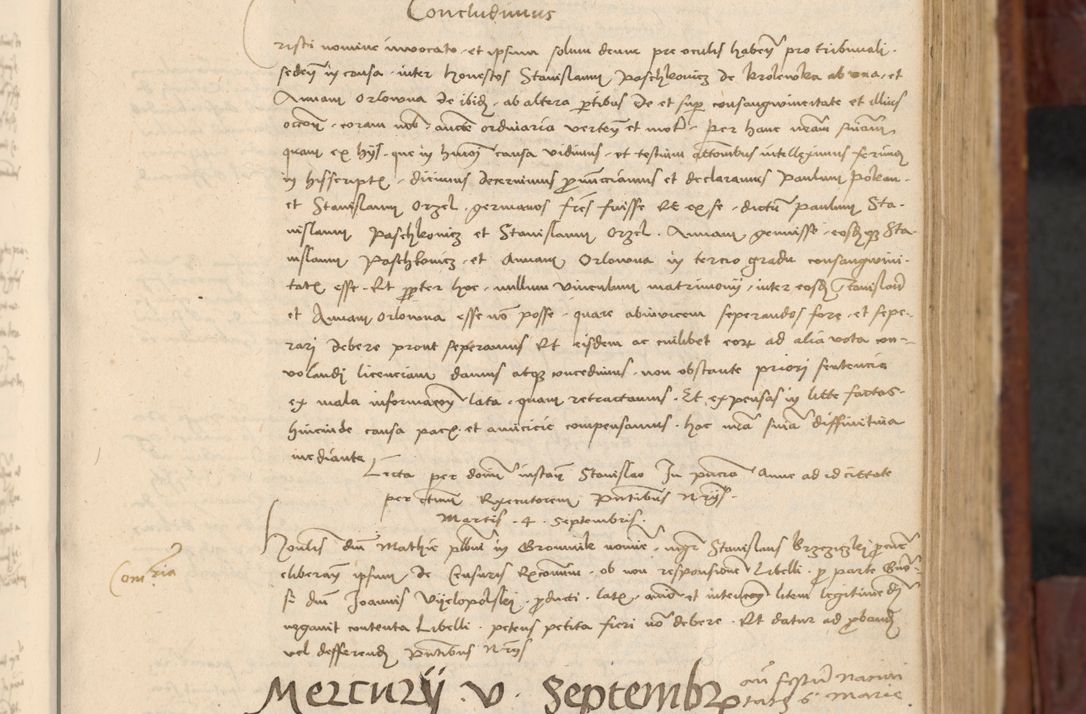 Concludimus
risti nomine invocato et ipsum solum deum pre oculis haben pro tribunali
seden in causa inter honestos Stanislaum Paschkowicz de Krolewka ab una et
Annam Orlowna de ibid ab altera ptibus de et sup consangwineitate et illius
occon coram nob aucte ordinaria verten et mot per hanc nram sniam
quam ex hys que in hmoi causa vidimus et testium attentibus intelleximus ferimus
in hisscriptis dicimus decernimus pronunciamus et declaramus Paulum
et Stanislaum Orzel germanos fres fuisse Et ex se dictum Paulum Sta-
nislaum Paschkowicz et Stanislaum Orzel Annam genuisse eosdemqz Sta-
nislaum Paschkowicz et Annam Orlowna in tercio gradu consangwini-
tatis esse Et ppter hoc nullum vinculum matrimonij inter eosd Stanislaum
et Annam Orlowna esse no posse quare abinvicem seperandos fore et sepe-
rari debere prout seperamus Et eisdem ac cuilibet eorum ad alia vota con-
volandi licenciam damus atqz concedimus non obstante priori sentencia
ex mala informacone lata quam retractamus Et expensas in litte factas
hincinde causa pacis et amicicie compensamus hac nra snia diffinitiva
mediante
Lecta per dominum instan Stanislao In pncia Anne ad id cittate
per Executorem Pntibus Nrys
Martis 4 Septembris
Conria
Honlis dni Mathie plbni in Gromnik nomine mgr Stanislaus Brzezizki procur
liberavit ipsum de Censuris Excomun ob non responsione Libelli p parte Gno-
si dni Joannis Vyelopolski producti late animo et intencone litem legittime
negavit contenta Libelli petens petita fieri no debere Et datur ad proband
vel defferend Pntibus Nrys
Mercury v Septembr